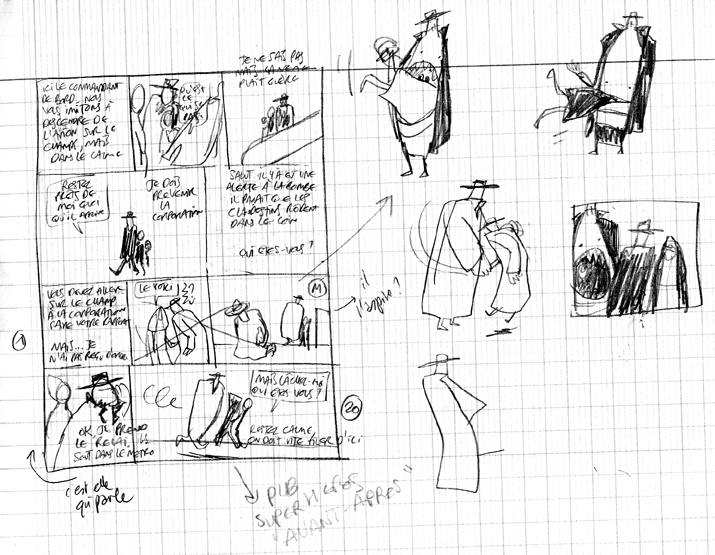 JE NE SAIS PAS
MAIS ÇA NE ME
PLAIT GUÈRE
ICI LE COMMANDANT
DE BORD. NOUS
VOUS INVITONS À
DESCENDRE DE
L'AVION SUR LE
CHAMP, MAIS
DANS LE CALME
QU'EST
CE
QUI SE
PASSE
RESTEZ
PRÈS DE
MOI QUOI
QU'IL ARRIVE
JE DOIS
PRÉVENIR
LA
CORPORATION
SALUT IL Y A EU UNE
ALERTE À LA BOMBE
IL PARAIT QUE LES
CLANDESTINS RÔDENT
DANS LE COIN
QUI ÊTES-VOUS?
VOUS DEVEZ ALLER
SUR LE CHAMP
À LA CORPORATION
FAIRE VOTRE RAPPORT
MAIS... JE
N'AI PAS REÇU D'ORDRE
LE VOICI
il
MAIS LÂCHEZ-MOI
QUI ÊTES VOUS?
RESTEZ CALME,
ON DOIT VITE ALLER D'ICI
20
OK, JE PREND
LE RELAI, ILS
SONT DANS LE MÉTRO
c'est elle
qui parle
PUB
SUPER HÉROS
"AVANT-APRÈS"